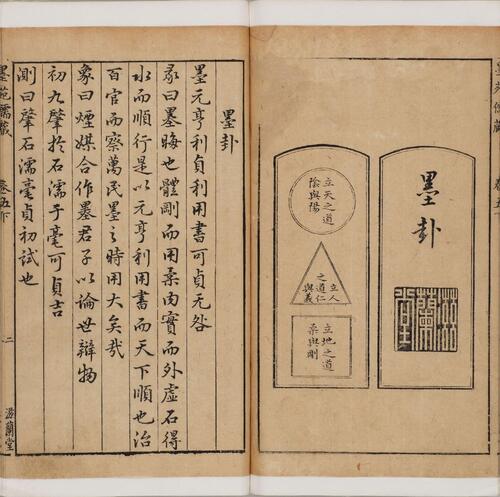 墨卦
立天之道
陰與陽
立人
之道仁
與義
立地之道
柔與剛
墨卦
墨元亨利貞利用書可貞无咎
彖曰墨晦也體剛而用柔内實而外虛石得
水而順行是以元亨利用書而天下順也治
百官而察萬民墨之時用大矣哉
象曰煙媒合作墨君子以論世辯物
初九肇於石濡于毫可貞吉
測曰肇石濡毫貞初試也
墨苑儒藏
卷五下
二
滋蘭堂